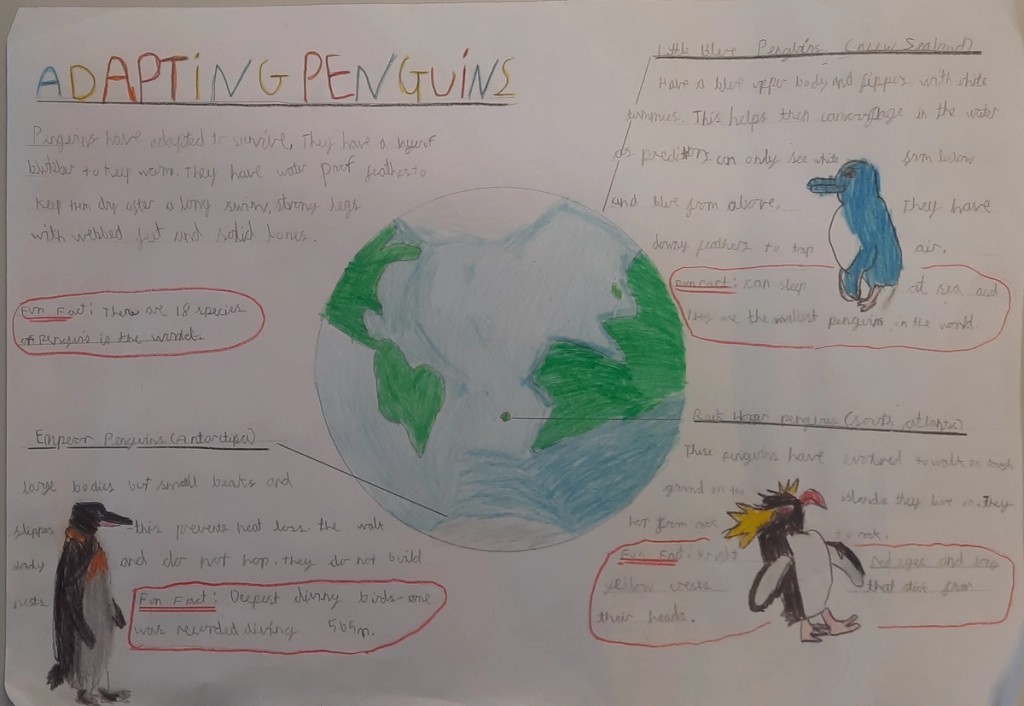 ADAPTING PENGUINS
Penguins have adapted to survive. They have a layer of
blubber to keep warm. They have water prof feathes to
keep them dry after a long swim, strong legs
with webbed feet and solid bones.
Fun Fact: There are 18 species
of penguins in the world.
Little Blue Penguins (New Zealand)
Have a blue upper body and flipper with white
tummies. This helps then camouflage in the water
as preditors can only see white from below
and blue from above. They have
downy feathers to trap air.
Fun Fact: can sleep at sea and
they are the smallest penguins in the world.
Rock Hopper penguins (South atlantic)
These penguins have evolved to walk on rough
ground on the islands they live in. They
hop from rock to rock.
Fun Fact: Bright Red eyes and long
yellow crests that stick from
their heads.
Emperor Penguins (Antarctica)
large bodies but small beaks and
flippers - this prevents heat loss. the walk
and do not hop. they do not build
nests
Fun Fact: Deepest diving birds - one
was recorded diving 565m.